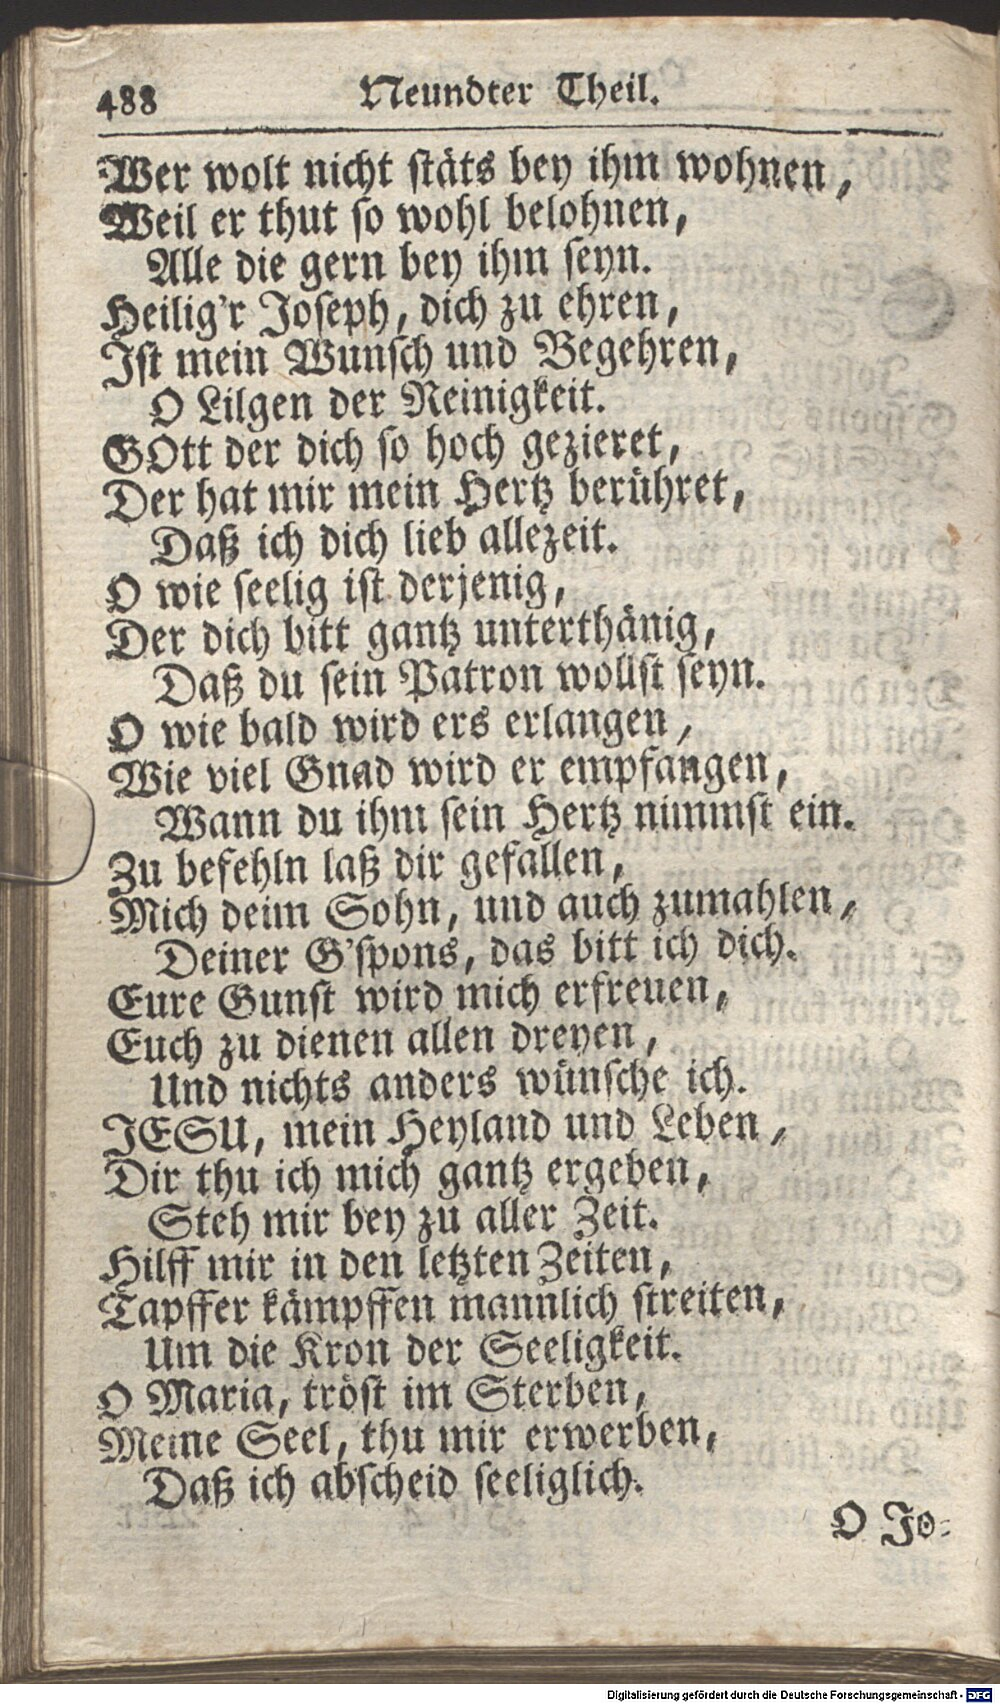 488 Neundter Theil.
Wer wolt nicht stäts bey ihm wohnen,
Weil er thut so wohl belohnen,
Alle die gern bey ihm seyn.
Heilig'r Joseph, dich zu ehren,
Ist mein Wunsch und Begehren,
O Lilgen der Reinigkeit.
GOtt der dich so hoch gezieret,
Der hat mir mein Hertz berühret,
Daß ich dich lieb allezeit.
O wie seelig ist derjenig,
Der dich bitt gantz unterthänig,
Daß du sein Patron wollst seyn.
O wie bald wird ers erlangen,
Wie viel Gnad wird er empfangen,
Wann du ihm sein Hertz nimmst ein.
Zu befehln laß dir gefallen,
Mich deim Sohn, und auch zumahlen,
Deiner G'spons, das bitt ich dich.
Eure Gunst wird mich erfreuen,
Euch zu dienen allen dreyen,
Und nichts anders wünsche ich.
JESU, mein Heyland und Leben,
Dir thu ich mich gantz ergeben,
Steh mir bey zu aller Zeit.
Hilff mir in den letzten Zeiten,
Tapffer kämpffen mannlich streiten,
Um die Kron der Seeligkeit.
O Maria, tröst im Sterben,
Meine Seel, thu mir erwerben,
Daß ich abscheid seeliglich.
O Jo-
Digitalisierung gefördert durch die Deutsche Forschungsgemeinschaft - DFG